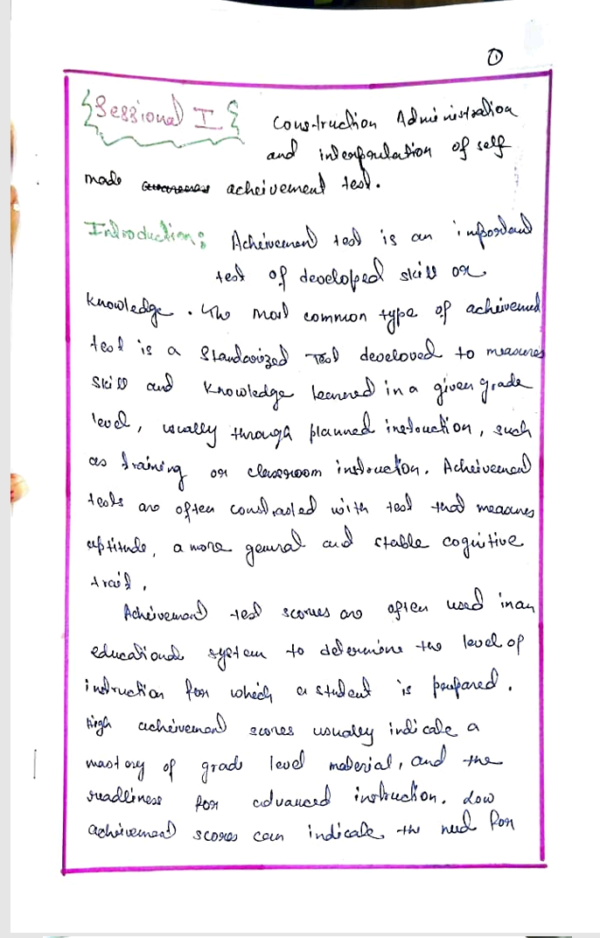 ①
{Sessional I} Construction Administration
and interpretation of self
made acheivement test.
Introduction: Acheivement test is an important
test of developed skill or
knowledge. The most common type of acheivement
test is a standarized Test developed to measures
skill and knowledge learned in a given grade
level, usually through planned instruction, such
as training or classroom instruction. Acheivement
tests are often constrasted with test that measures
aptitude, a more general and stable cognitive
trait.
Acheivement test scores are often used in an
educational system to determine the level of
instruction for which a student is prepared.
High acheivement scores usually indicate a
mastory of grade level material, and the
readliness for advanced instruction. Low
acheivement scores can indicate the need for